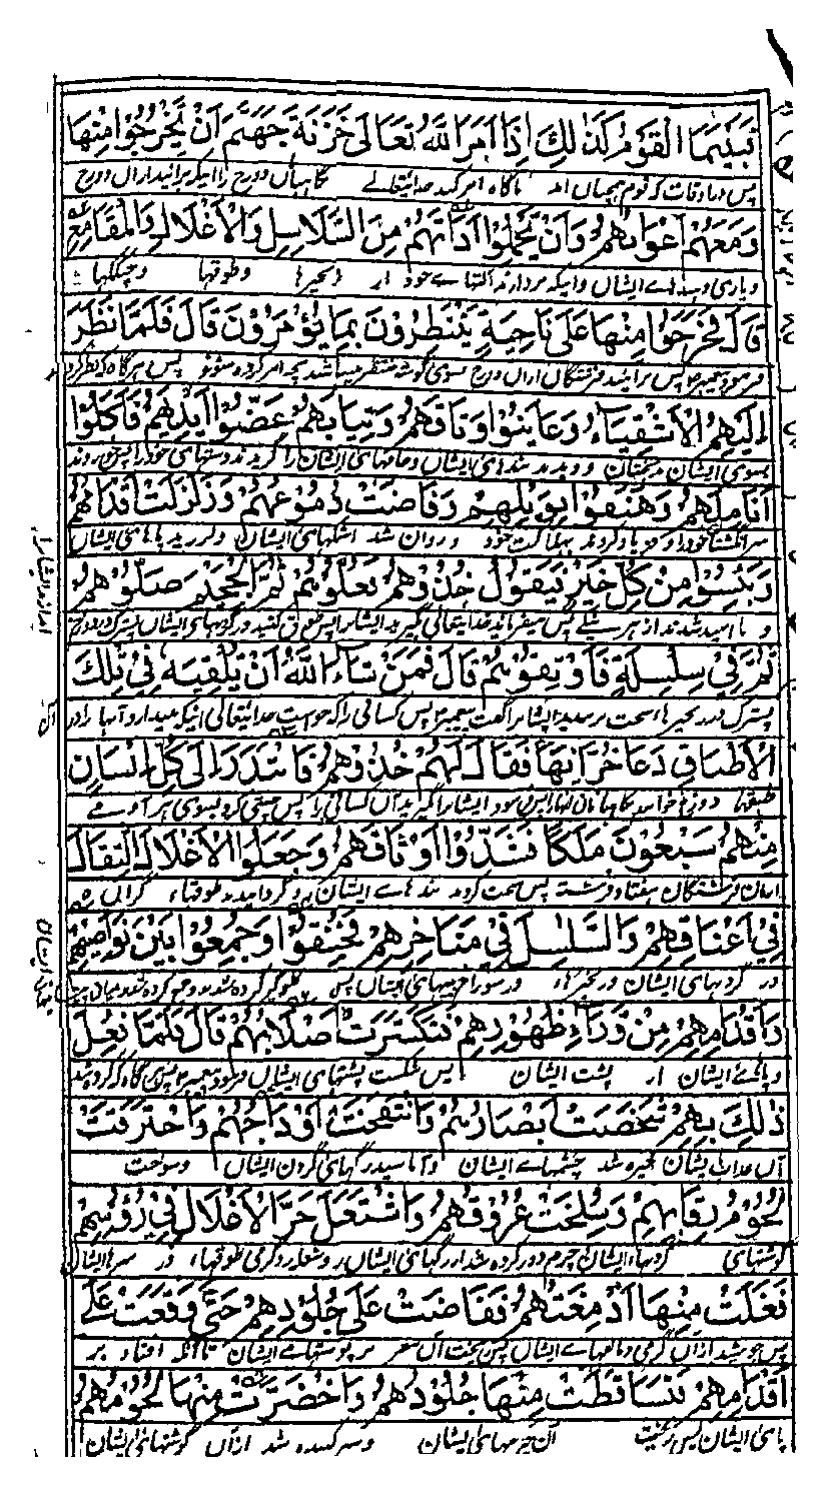 فَبَيْنَمَا الْقَوْمُ كَذٰلِكَ اِذَا اَمَرَ اللهُ تَعَالٰى خَزَنَةَ جَهَنَّمَ اَنْ يَخْرُجُوْا مِنْهَا
پس در اوقات که قوم همچنان اند ناگاه امر کند خدایتعالے نگاهبان دوزخ را اینکه برائید ازان دوزخ
وَمَعَهُمْ اَعْوَانُهُمْ وَاَنْ يَحْمِلُوْا اَدَاتَهُمْ مِنَ السَّلَاسِلِ وَالْاَغْلَالِ وَالْمَقَامِعِ
ایشان و اینکه بردارند آلتهاے خود از زنجیرها وطوقها
قَالَ فَخَرَجُوْا مِنْهَا عَلٰى نَاحِيَةٍ يَنْتَظِرُوْنَ بِمَا يُؤْمَرُوْنَ قَالَ فَلَمَّا نَظَرَ
فرمود پیغمبر پس برایند فرشتگان ازان دوزخ بسوی گوشه منتظر میباشند بچه امر کرده شوند پس هرگاه که نظر کرد
اِلَيْهِمُ الْاَشْقِيَاءُ وَعَايَنُوْا وَثَاقَهُمْ وَثِيَابَهُمْ عَضُّوْا اَيْدِيَهُمْ فَاَكَلُوْا
بسوی ایشان بدبختان و دیدند بندهای ایشان وجامهای ایشان را گزیدند دستهای خود را پس خوردند
اَنَامِلَهُمْ وَهَتَفُوْا بِوَيْلِهِمْ وَفَاضَتْ دُمُوْعُهُمْ وَزَلْزَلَتْ اَقْدَامُهُمْ
سر انگشتان خود را و فریاد کردند بهلاکت خود و روان شد اشکهای ایشان و لرزید پاهای ایشان
وَيَئِسُوْا مِنْ كُلِّ خَيْرٍ فَيَقُوْلُ خُذُوْهُمْ فَغُلُّوْهُمْ ثُمَّ الْجَحِيْمَ صَلُّوْهُمْ
و ناامید شدند از هر پس میفرماید خدایتعالی گیرید ایشانرا پس طوق کنید در گردنهای ایشان
ثُمَّ فِيْ سِلْسِلَةٍ فَاَوْثِقُوْهُمْ قَالَ فَمَنْ شَاءَ اللهُ اَنْ يُلْقِيَهٗ فِيْ تِلْكَ
پستر در زنجیرها سخت بربندید ایشانرا گفت پیغمبر پس کسانی را که خواست خدایتعالی اینکه بیندازد آنها را در
الْاَطْبَاقِ دَعَا خُزَّانَهَا فَقَالَ لَهُمْ خُذُوْهُمْ فَابْتَدَرَ اِلٰى كُلِّ اِنْسَانٍ
طبقها دوزخ خواند نگاهبانان پس فرمود ایشانرا گیرید آن کسانی را پس پیشی کرد بسوی هر آدمے
مِنْهُمْ سَبْعُوْنَ مَلَكًا فَشَدُّوْا اَوْثَاقَهُمْ وَجَعَلُوا الْاَغْلَالَ الثِّقَالَ
ازان فرشتگان هفتاد فرشته پس سخت کردند بندهاے ایشان را و گردانیدند طوقهاء گران
فِيْ اَعْنَاقِهِمْ وَالسَّلَاسِلَ فِيْ مَنَاخِرِهِمْ فَخُنِقُوْا وَجُمِعُوْا بَيْنَ نَوَاصِيْهِمْ
در گردنهای ایشان و زنجیرهاء در سوراخ بینیهای ایشان پس گلوگیر کرده شدند و جمع کرده شدند میان
وَاَقْدَامِهِمْ مِنْ وَّرَاءِ ظُهُوْرِهِمْ فَتَكَسَّرَتْ اَصْلَابُهُمْ قَالَ فَلَمَّا فُعِلَ
و پاهاے ایشان از پشت ایشان پس شکست پشتهای ایشان فرمود پیغمبر پس هرگاه که کرده شد
ذٰلِكَ بِهِمْ شَخَصَتْ اَبْصَارُهُمْ وَانْتَفَخَتْ اَوْدَاجُهُمْ وَاحْتَرَقَتْ
آن عذاب بایشان خیره شد چشمهاے ایشان و آماسید رگهای گردن ایشان وسوخت
لُحُوْمُ رِقَابِهِمْ وَسُلِخَتْ عُرُوْقُهُمْ وَاشْتَعَلَ حَرُّ الْاَغْلَالِ فِيْ رُؤُسِهِمْ
گوشتهای گردنهاء ایشان و چرم دور کرده شد از رگهای ایشان و شعله زد گرمی طوقهاء در سرهای ایشان
فَغَلَتْ مِنْهَا اَدْمِغَتُهُمْ فَفَاضَتْ عَلٰى جُلُوْدِهِمْ حَتّٰى وَقَعَتْ عَلٰى
پس جوشید ازان گرمی دماغهاے ایشان پس ریخت آن مغز بر پوستهاے ایشان تا آنکه افتاد بر
اَقْدَامِهِمْ فَتَسَاقَطَتْ مِنْهَا جُلُوْدُهُمْ وَاخْضَرَّتْ مِنْهَا لُحُوْمُهُمْ
پای ایشان پس ریخت ازان چرمهای ایشان وسبز شد ازان گوشتهای ایشان